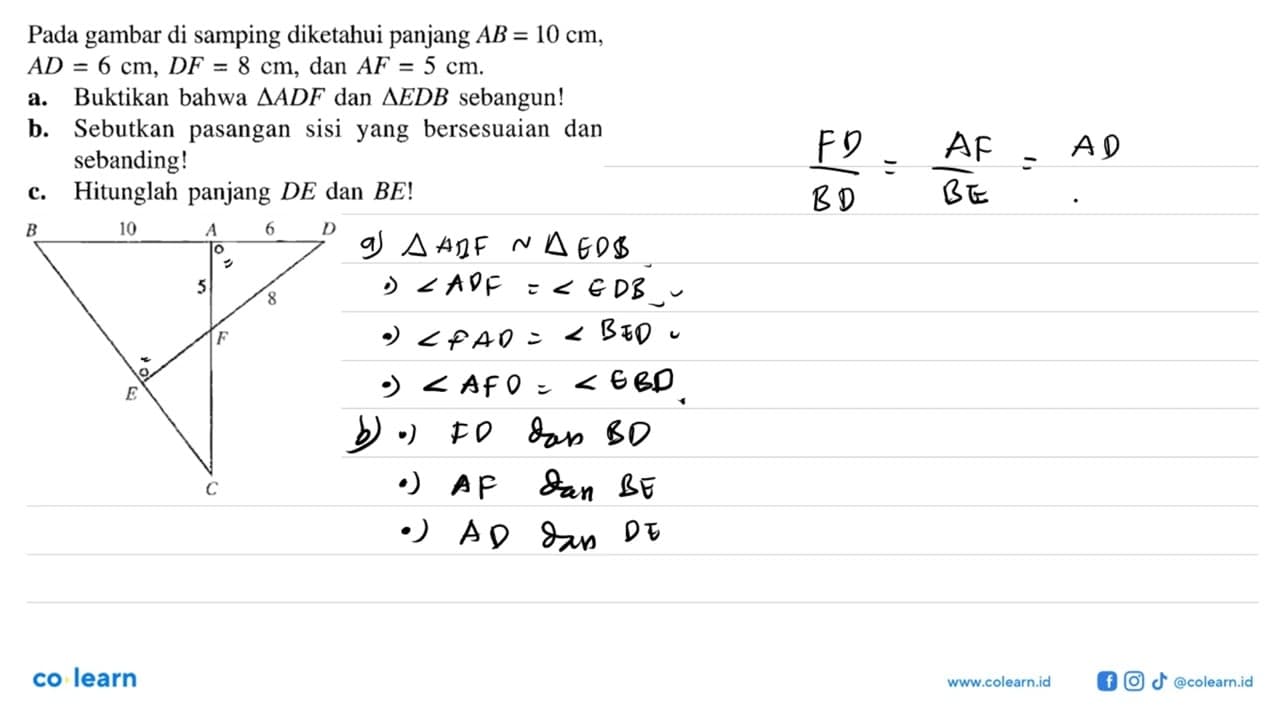 Pada gambar di samping diketahui panjang AB = 10 cm,
AD = 6 cm, DF = 8 cm, dan AF = 5 cm.
a. Buktikan bahwa ΔADF dan ΔEDB sebangun!
b. Sebutkan pasangan sisi yang bersesuaian dan
sebanding!
c. Hitunglah panjang DE dan BE!
FD/BD = AF/BE = AD
B 10 A 6 D
5
8
F
E
C
a) Δ ADF ~ Δ EDB
•) ∠ ADF = ∠ EDB
•) ∠ FAD = ∠ BED
•) ∠ AFD = ∠ EBD
b) •) FD dan BD
•) AF dan BE
•) AD dan DE
co learn
www.colearn.id
@colearn.id